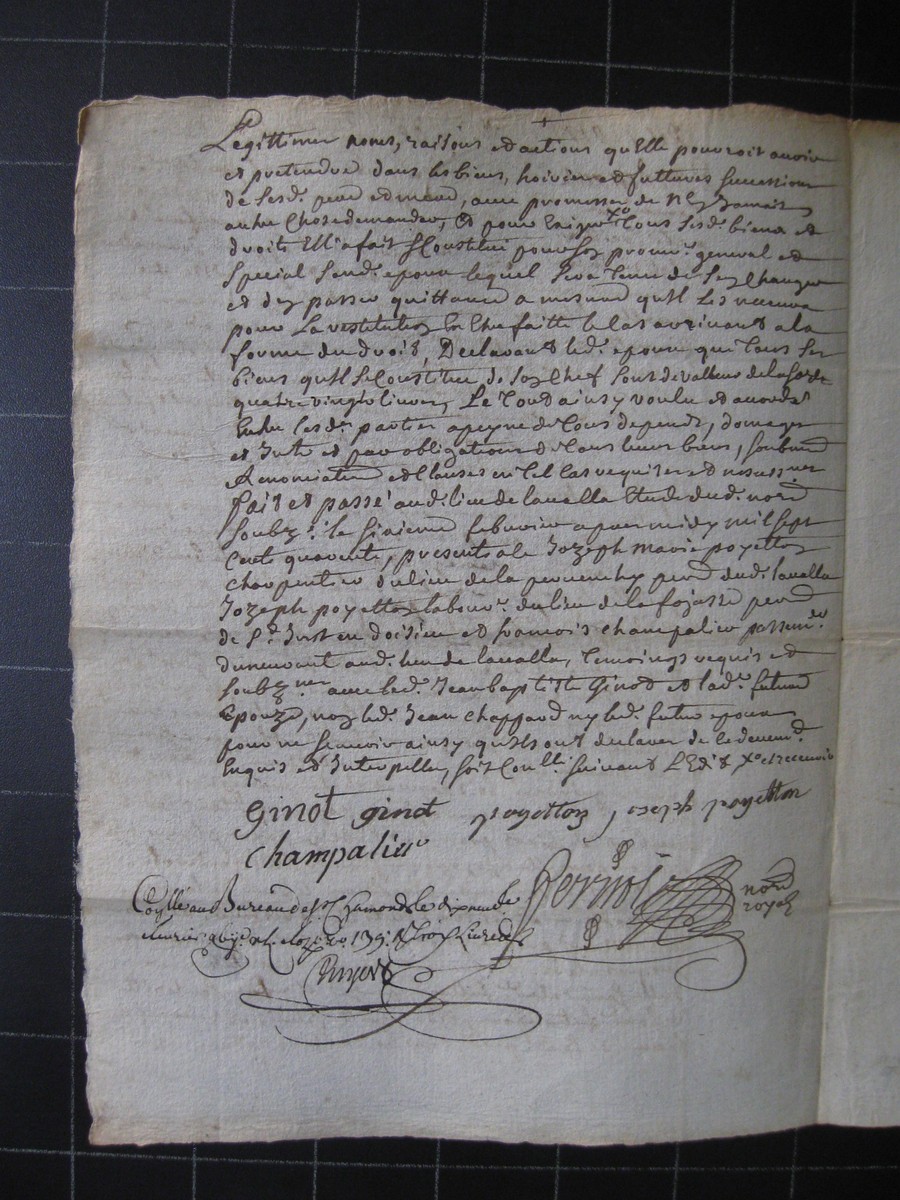 Legittimer noms, raisons et actions qu'Elle pourroit avoir
et pretendre dans les biens, hoiries et futtures successions
de sesd. pere et mere, avec promesse de n'y Jamais
autre Chose demander, Et pour Exiger tous sesd. biens et
droits Ell'a fait et Constitué pour son procur. general et
Special Sond. epoux lequel sera tenu de s'en Charger
et d'en passer quittance a mesure qu'Il Les recevra
pour La restitution En Estre faitte le Cas arrivant a la
forme du droit, Declarant led. epoux que tous ses
biens qu'Il se Constitue de son Chef sont de valleur de la somme
quatre vingt livres, Le tout ainsy voulu et accordé
Entre lesd. parties a peyne de tous depends, domages
et Int. et par obligations de tous leurs biens, soubm.
Renonciations et Clauses en tel Cas requises et necess.res
fait et passé aud. lieu de lavalla Etude dud. no.re
soubz. le sixieme febvrier apres midy mil sept
Cents quarante, presents a ce Jozeph Marie poyetton
charpentier du lieu de la pervenche parr. dud. lavalla
Jozeph poyetton labour. du lieu de la fojasse parr.
de St. Just en doisieu et francois champalier
demeurant aud. lieu de lavalla, temoings requis et
soubz.nes avec led. Jean baptiste Ginot et lad. future
Epouze, non led. Jean chappard ny led. futur epoux
pour ne scavoir ainsy qu'Ils ont declaré de ce deuem.
Enquis et Interpellés, soit Con.llé suivant L'Edit
Ginot ginot poyetton joseph poyetton
Champalier
Con.llé au Bureau de St. Chamond le dix neuf
Pernot no.re royal